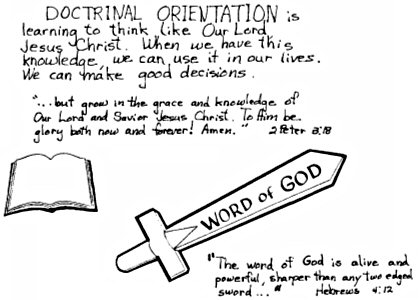 DOCTRINAL ORIENTATION is
learning to think like Our Lord
Jesus Christ. When we have this
knowledge, we can use it in our lives.
We can make good decisions.
"...but grow in the grace and knowledge of
Our Lord and Savior Jesus Christ. To Him be
glory both now and forever! Amen." 2 Peter 3:18
WORD of GOD
"The word of God is alive and
powerful, sharper than any two edged
sword..." Hebrews 4:12